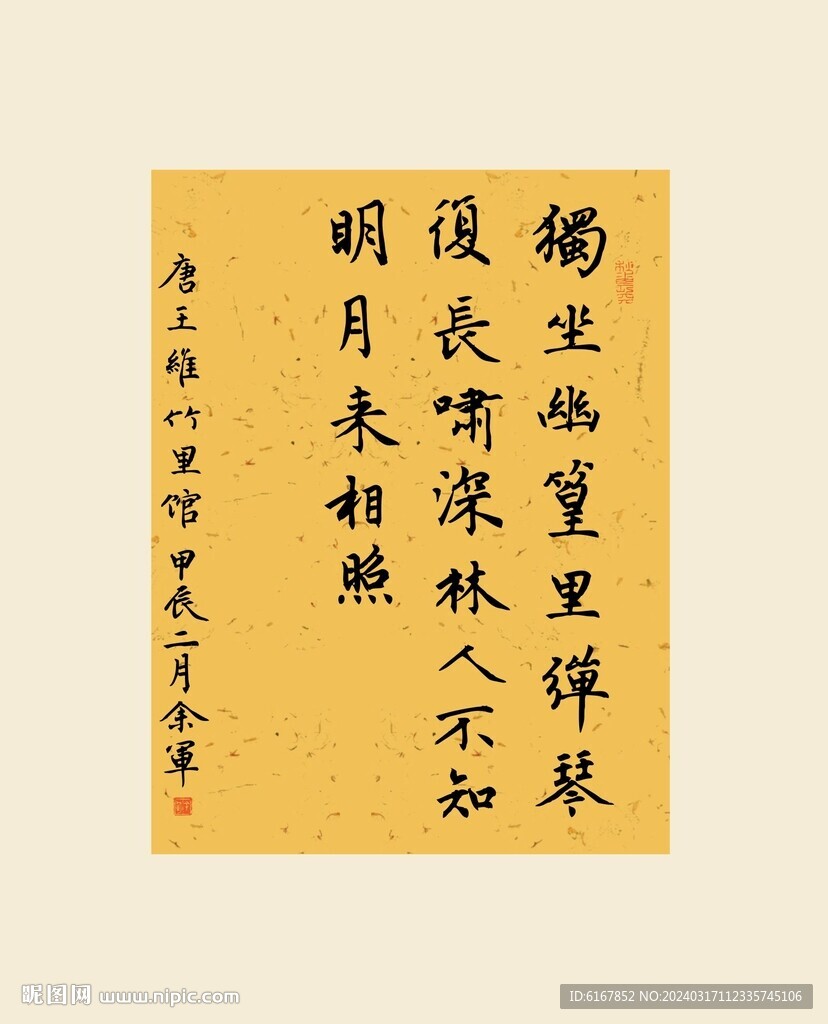 獨坐幽篁里彈琴
復長嘯深林人不知
明月来相照
唐王維竹里馆甲辰二月余軍
昵图网 www.nipic.com
ID:6167852 NO:20240317112335745106